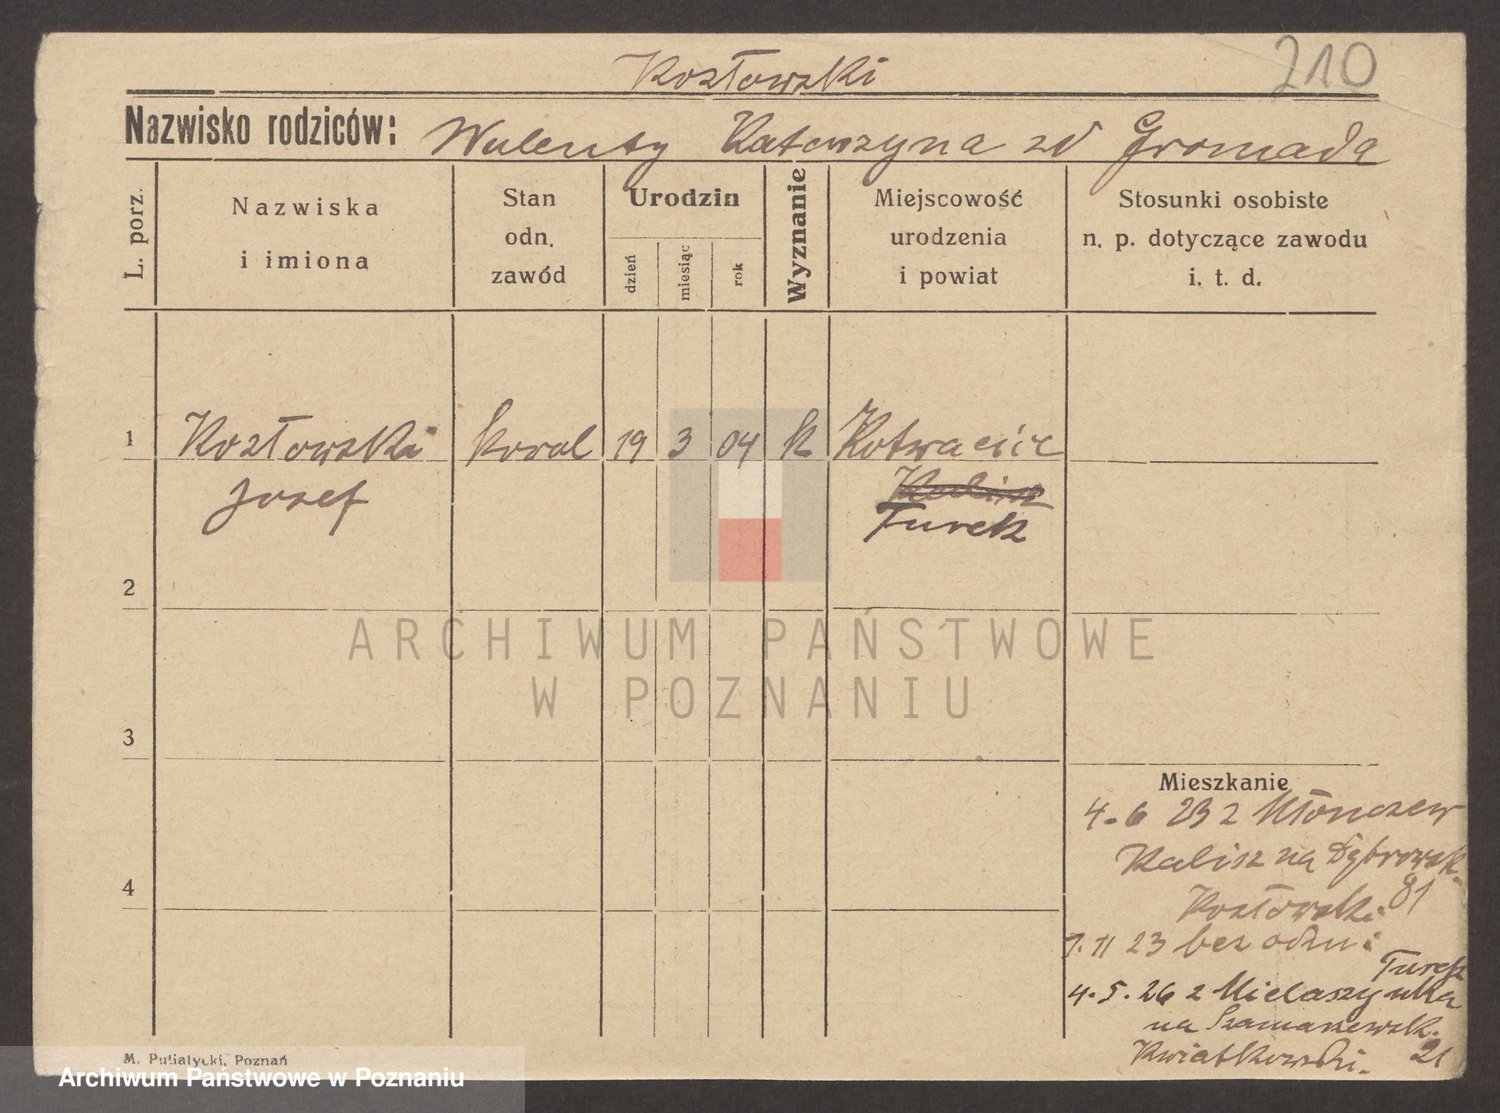 210
Kozłowski
Nazwisko rodziców: Walenty Katarzyna zd Gromada
L. porz.
Nazwiska
i imiona
Stan
odn.
zawód
Urodzin
dzień
miesiąc
rok
Wyznanie
Miejscowość
urodzenia
i powiat
Stosunki osobiste
n. p. dotyczące zawodu
i. t. d.
1 Kozłowski kowal 19 3 04 k
Józef
Turek
2
3
4
Mieszkanie
4. 6 23 z
Kalisz na Dąbrowsk.
81
Kozłowski
7. 11 23 bez odm:
Turek
4. 5. 26 z
na
Kwiatkowski. 21
ARCHIWUM PAŃSTWOWE
W POZNANIU
M. Putiatycki, Poznań
Archiwum Państwowe w Poznaniu